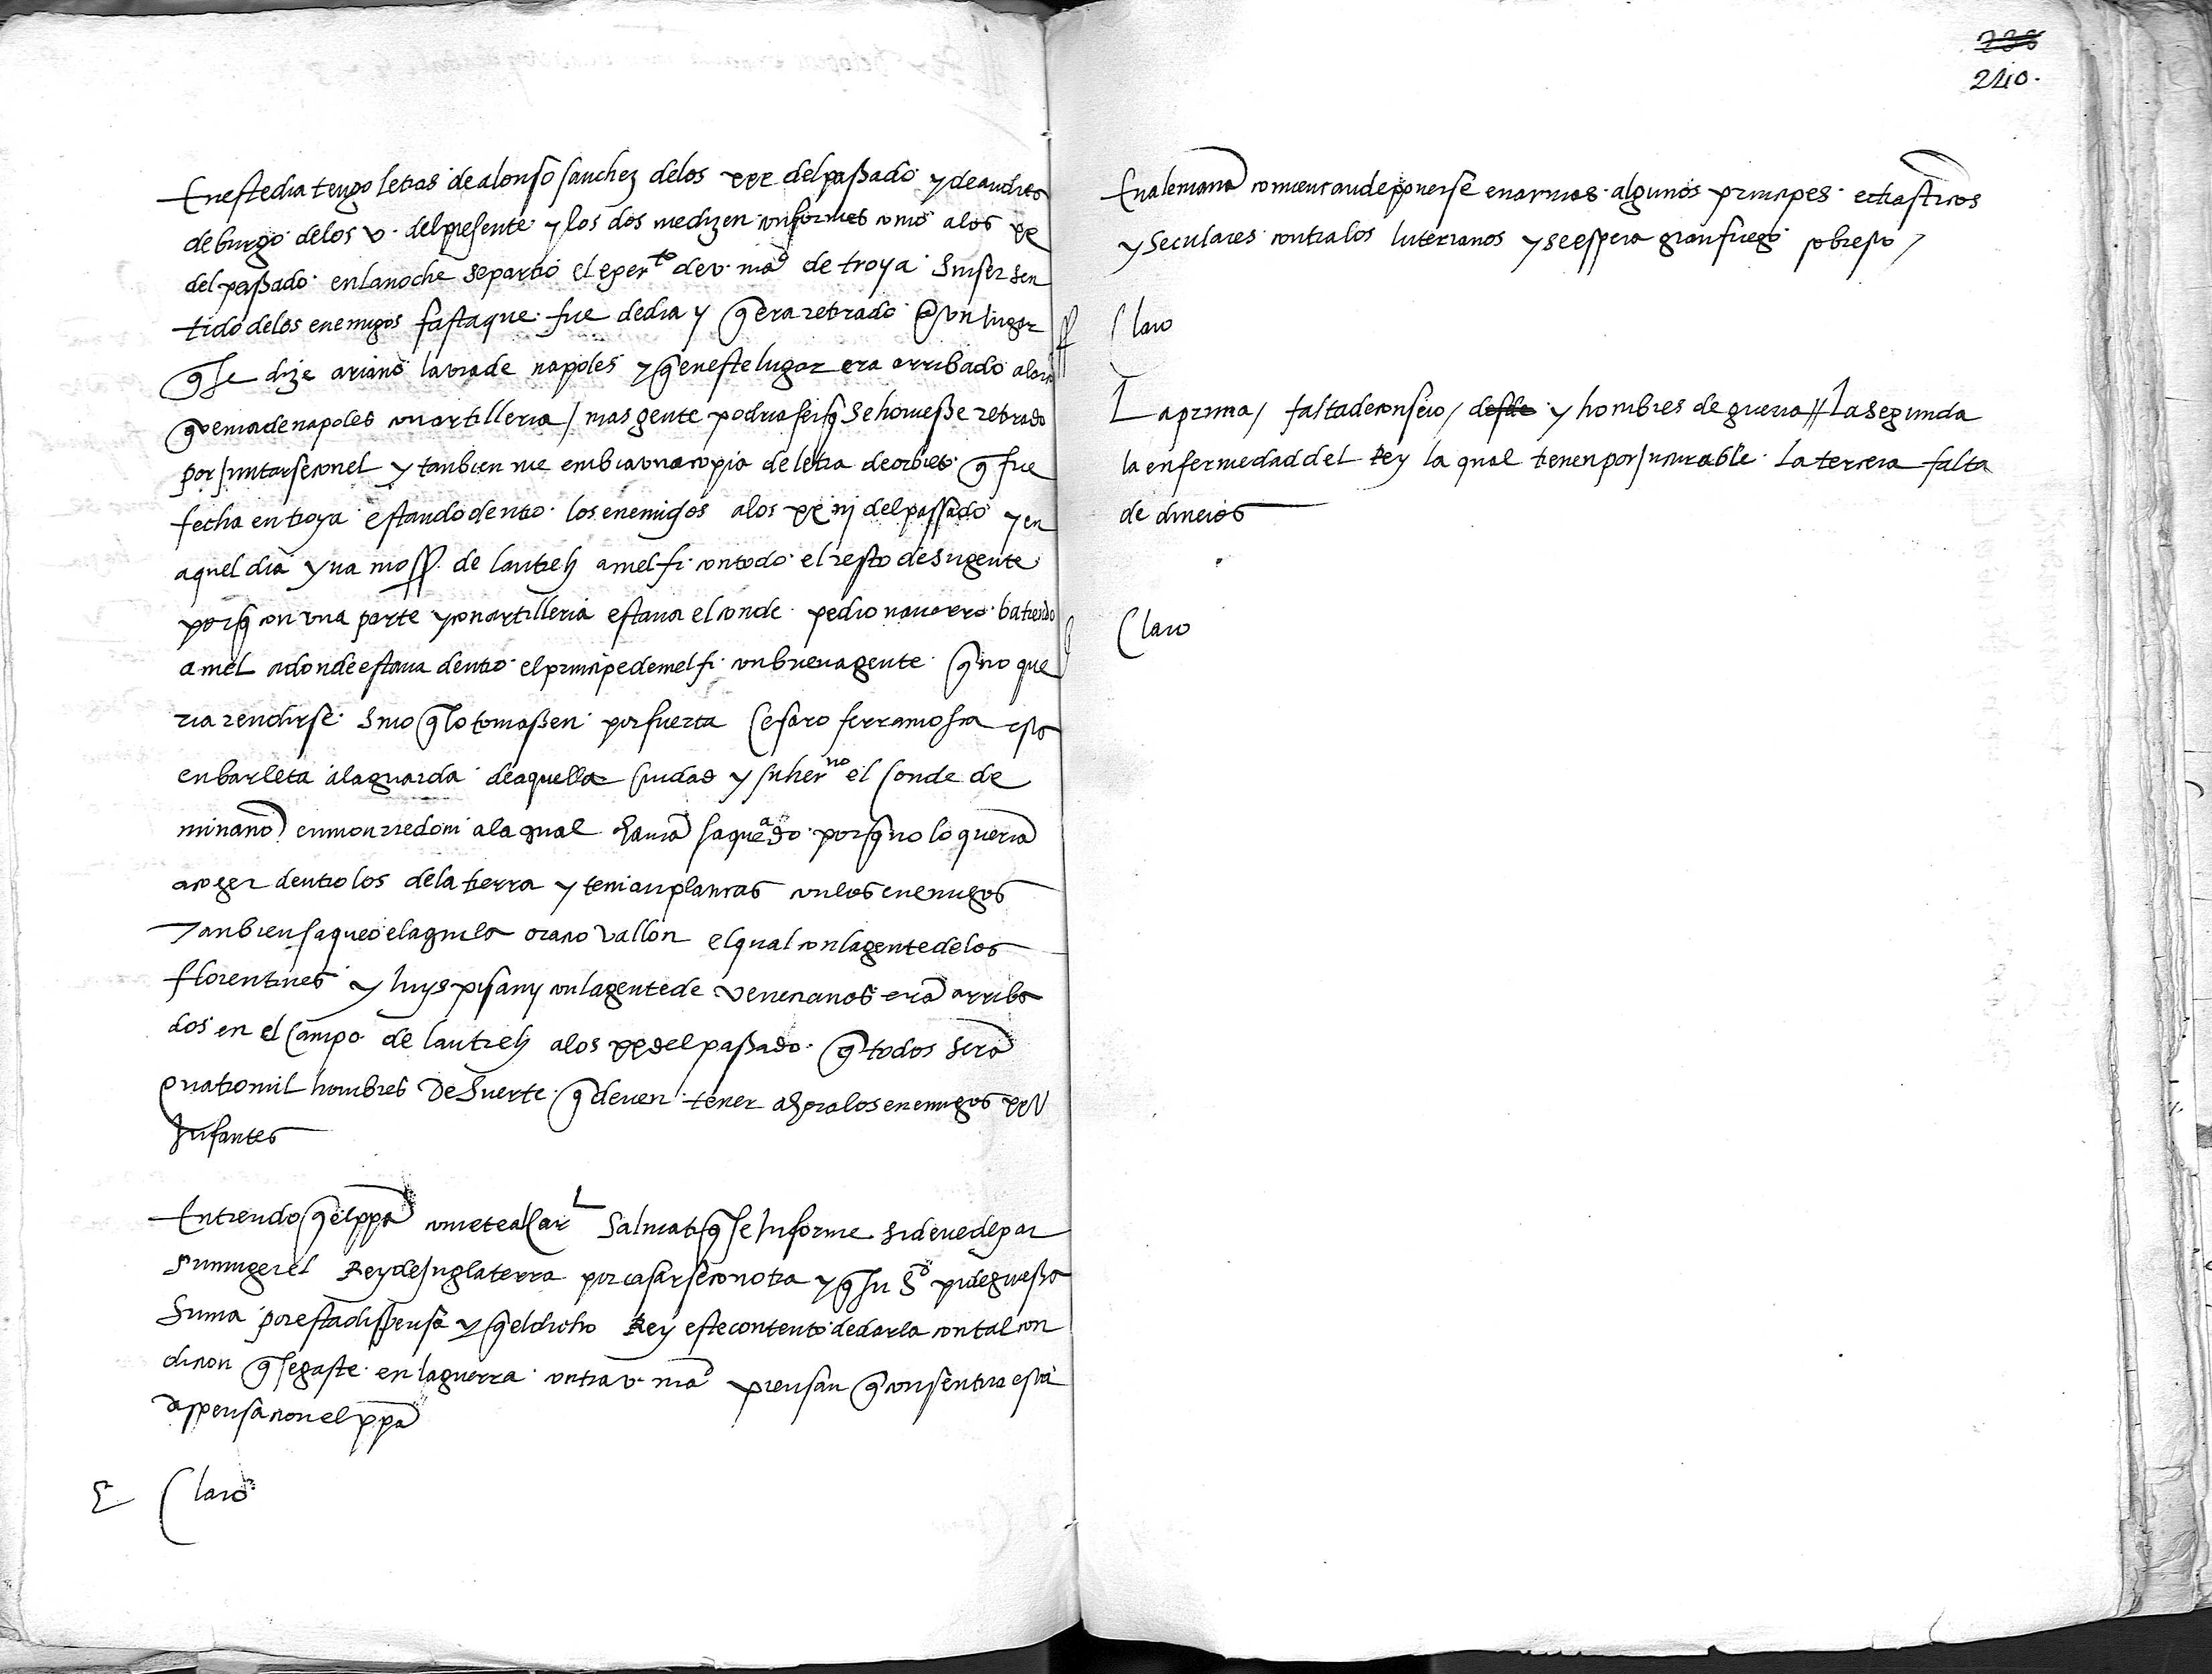 En este dia tengo letras de alonso sanchez delos xxx del passado y de andres
de burgo delos v. del presente y los dos me dizen conformes como alos xx
del passado en la noche se partio el exerto de v. mad de troya sin ser sen
tido delos enemigos fasta que fue de dia y q era retirado a un lugar
q se dize ariano la via de napoles y q en este lugar era arribado alarcon
q venia de napoles con artilleria / mas gente podria ser q se houiesse retirado
por juntarse con el y tanbien me embia una copia de letra de orbieto q fue
fecha en troya estando dentro los enemigos alos xx iij del passado y en
aquel dia yua moss. de lautrech a melfi con todo el resto de su gente
porq con una parte y con artilleria estaua el conde pedro nauarro batiendo
a mel adonde estaua dentro el principe de melfi con buena gente q no que
ria rendirse sino q lo tomassen por fuerça Cesaro ferramosca esta
en barleta ala guarda de aquella ciudad y su herno el conde de
minano en monrredoni ala qual hauia saqueado porq no lo queria
acoger dentro los dela tierra y tenian platicas con los enemigos
Tanbien saqueo el aguila oracio vallon el qual con la gente de los
florentines y luys pisany con la gente de venecianos era arriba
dos en el Campo de lautrech alos xx del passado q todos sera
quatro mil hombres De Suerte q deuen tener agora los enemigos xxV
Infantes
Entiendo q el ppa comete al Carl Saluiatis q se Informe si deue dexar
su muger el Rey de Inglaterra por casarse con otra y q su Sd pide gruessa
suma por esta dispensa y q el dicho Rey este contento de darla con tal con
dicion q se gaste en la guerra contra v. mad piensan q consentira esta
dispensacion el ppa
Claro
738
240.
En alemana comiençan de ponerse en armas algunos principes ecclasticos
y Seculares contra los luterianos y se espera gran fuego sobresto /
Claro
La prima / falta de conseio / desde y hombres de guerra // La segunda
la enfermedad del Rey la qual tienen por Incurable. La tercera falta
de dineros
Claro